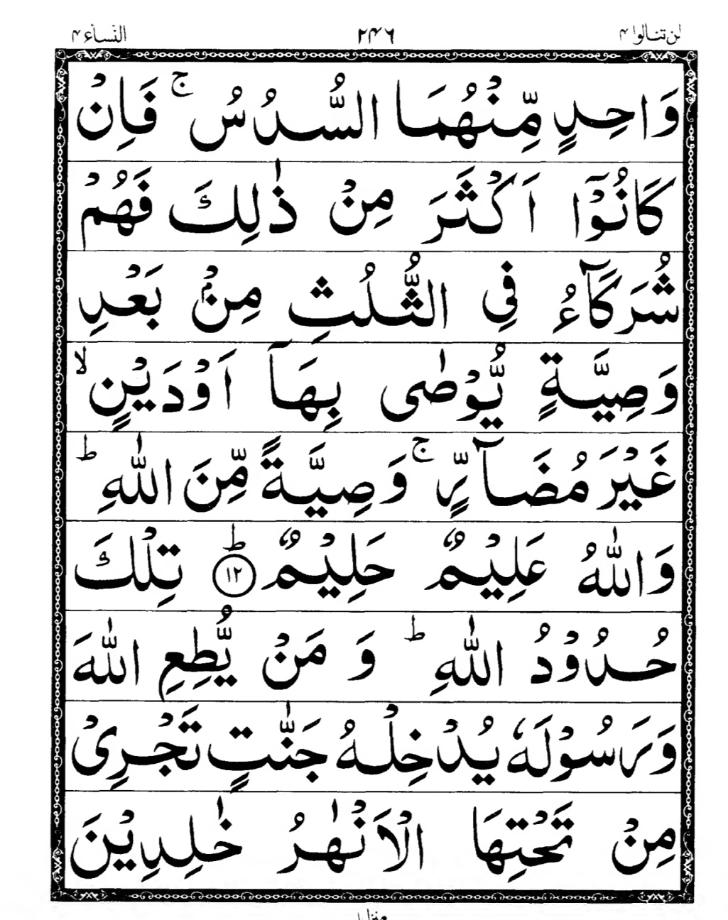 لن تنالوا ۴ ۲۴۶ النسآء ۴
وَاحِدٍ مِّنْهُمَا السُّدُسُ ۚ فَاِنْ
كَانُوْۤا اَكْثَرَ مِنْ ذٰلِكَ فَهُمْ
شُرَكَآءُ فِی الثُّلُثِ مِنْۢ بَعْدِ
وَصِيَّةٍ يُّوْصٰى بِهَاۤ اَوْدَيْنٍ ۙ
غَيْرَ مُضَآرٍّ ۚ وَصِيَّةً مِّنَ اللّٰهِ ؕ
وَاللّٰهُ عَلِيْمٌ حَلِيْمٌ ؕ ﴿۱۲﴾ تِلْكَ
حُدُوْدُ اللّٰهِ ؕ وَ مَنْ يُّطِعِ اللّٰهَ
وَرَسُوْلَهٗ يُدْخِلْهُ جَنّٰتٍ تَجْرِیْ
مِنْ تَحْتِهَا الْاَنْهٰرُ خٰلِدِيْنَ
منزل ۱